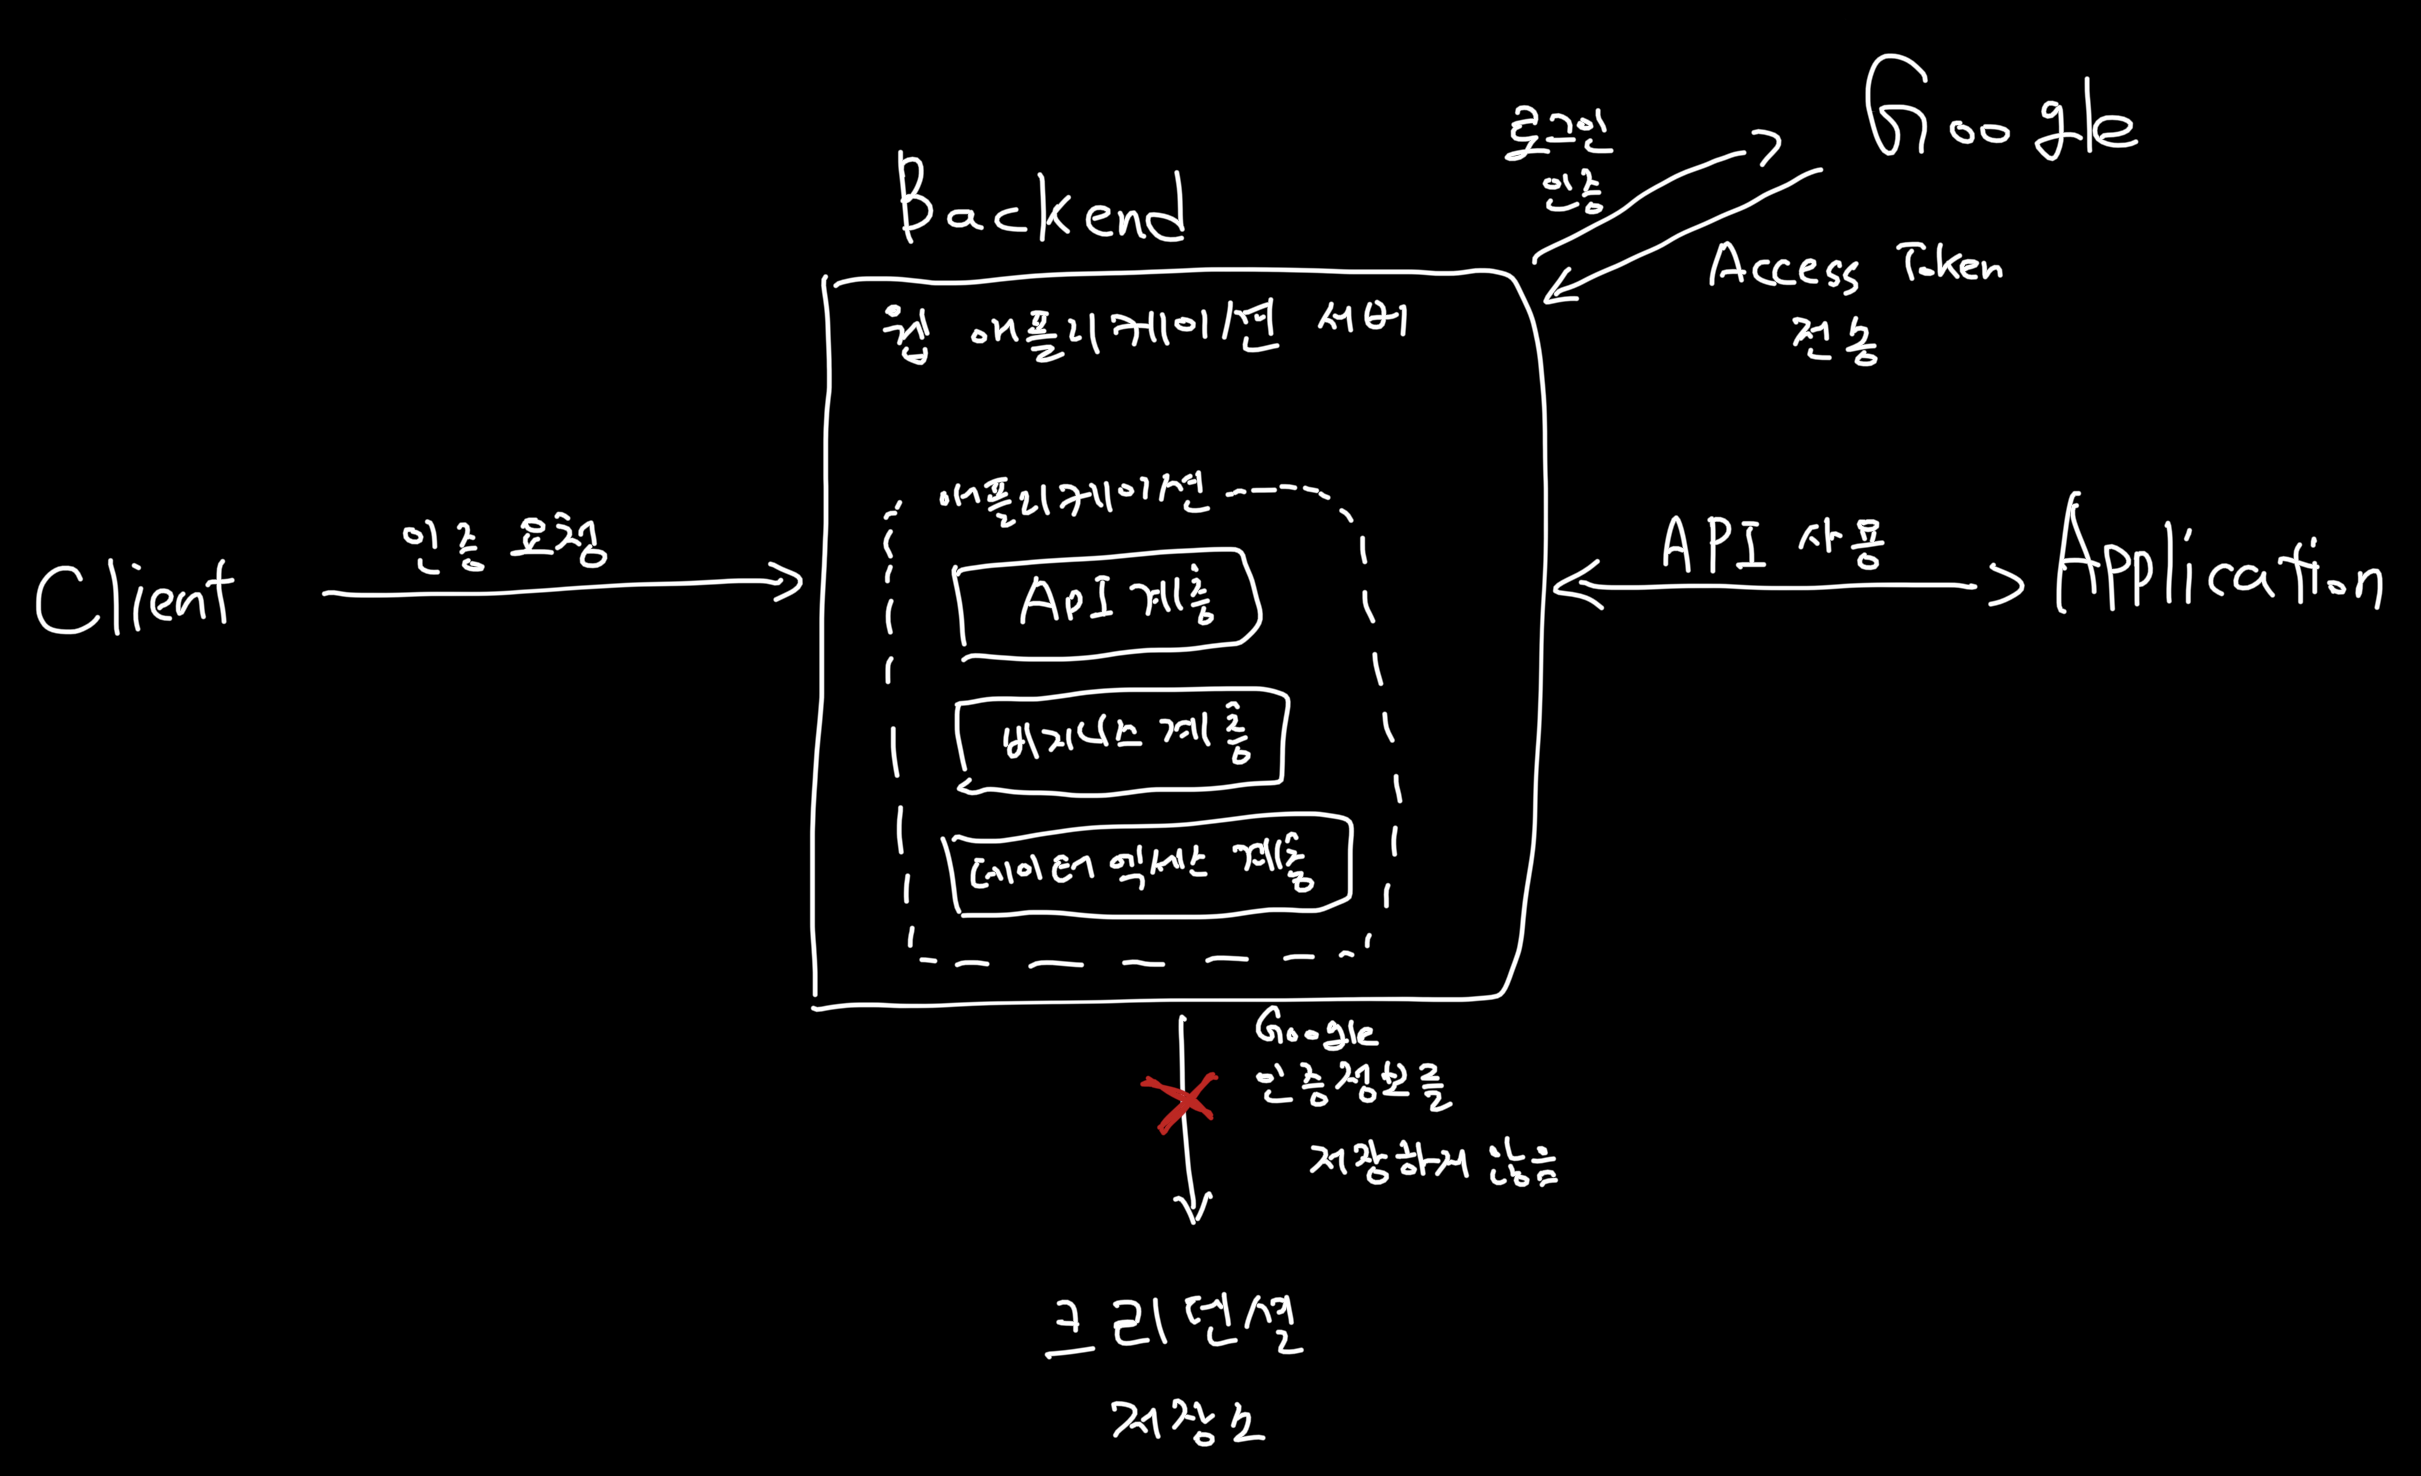 Google
로그인
인증
Backend
Access Token
전송
웹 애플리케이션 서버
애플리케이션
Client
인증 요청
API 계층
API 사용
Application
비지니스 계층
데이터 엑세스 계층
Google
인증정보를
저장하지 않음
크리덴셜
저장소